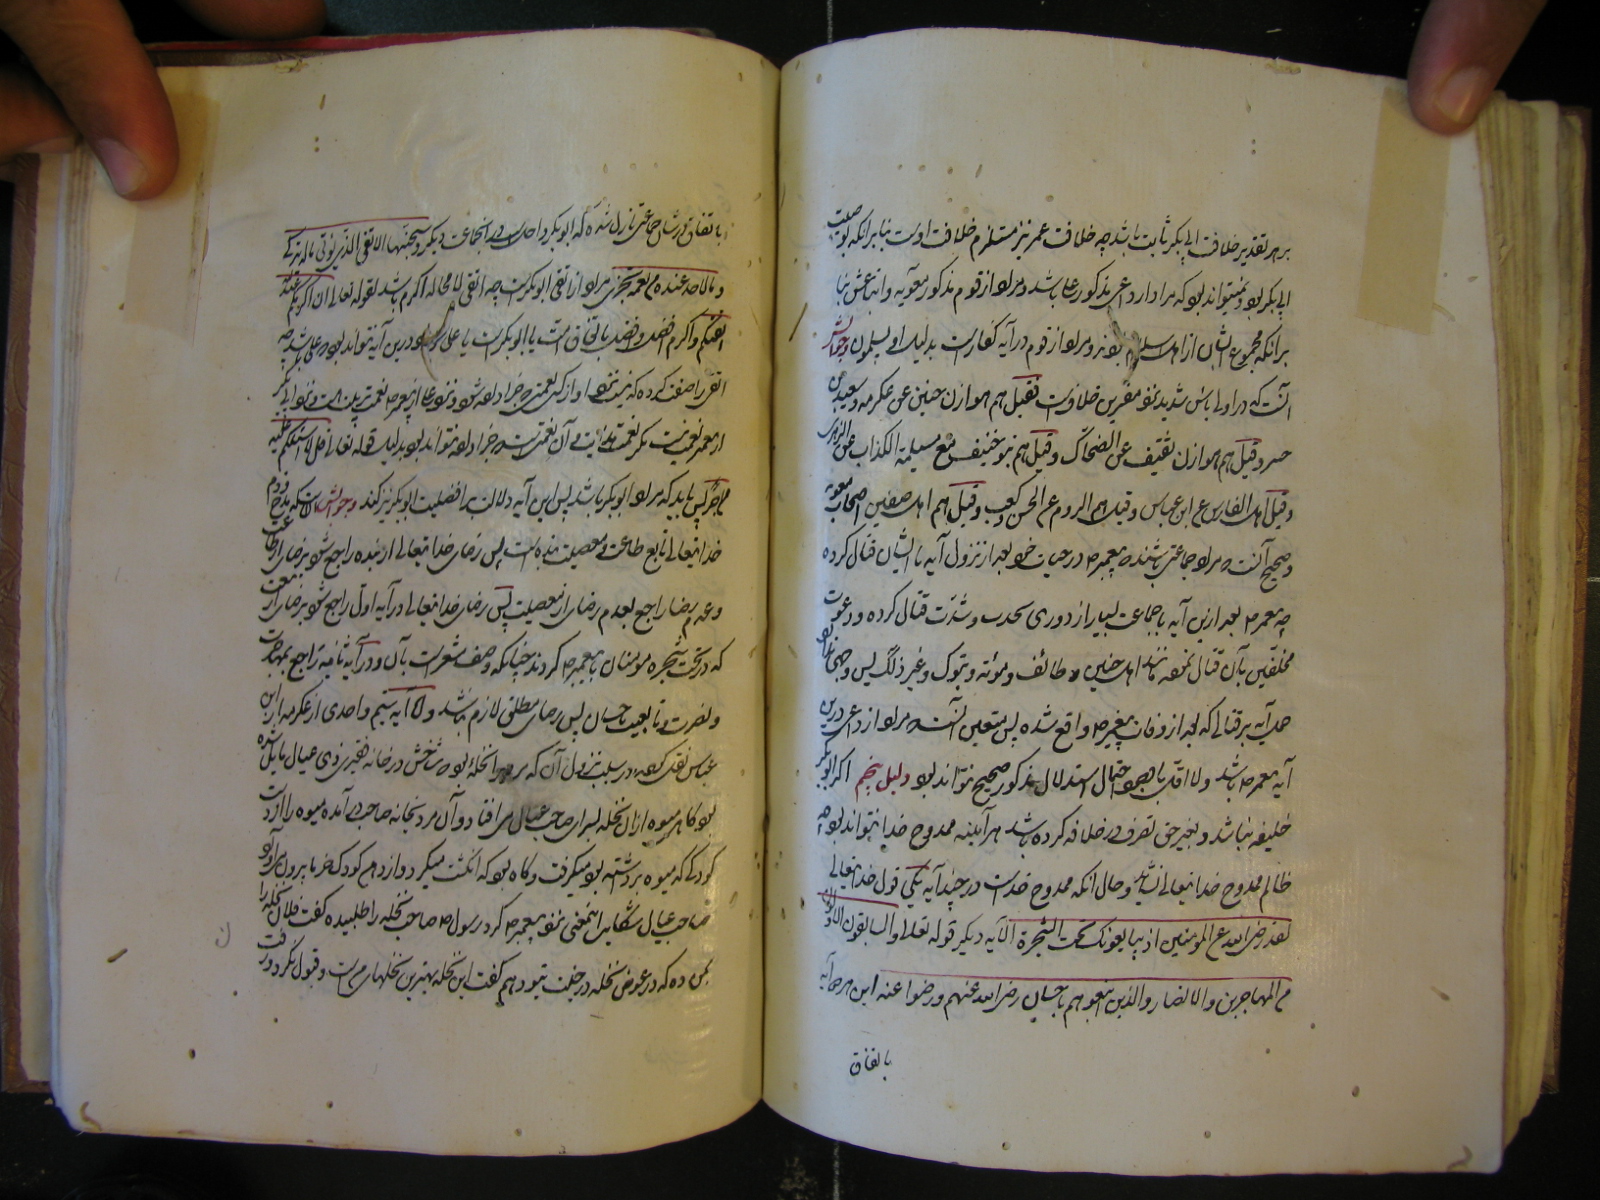 بر هر تقدیر خلافت ابی بکر ثابت باشد چه خلافت عمر نیز مستلزم خلافت اوست بنا برانکه بوصیت
ابی بکر بود و نمیتواند بود که مراد از داعی مذکور علی باشد و مراد از قوم مذکور معویه و اتباعش بنا
برانکه مجموع ایشان از اهل اسلام بودند و مراد از قوم در آیه کفارست بدلیل او یسلمون و جوابش
آنست که در اولی باس شدید نمفسرین خلافست فقیل هم هوازن حنین عن عکرمه و سعید بن
جبیر و قیل هم هوازن ثقیف عن الضحاک و قیل هم بنو حنیف مع مسیلمة الکذاب عن الزهری
و قیل اهل الفارس عن ابن عباس و قیل هم الروم عن الحسن و کعب و قیل هم اهل صفین اصحاب معویه
و صحیح آنست که مراد جماعتی باشند که پیغمبر در حیات خود بعد از نزول آیه با ایشان قتال کرده
چه پیغمبر بعد ازین آیه با جماعت بسیار از ذوی نجدت و شدت قتال کرده و دعوت
مخلفین بآن قتال نموده مانند اهل حنین و طائف و موته و تبوک و غیر ذلک پس وجهی ندارد
حمل آیه بر قتالی که بعد از وفات پیغمبر واقع شده پس متعین آنست که مراد از داعی درین
آیه پیغمبر باشد و لا اقل با وجود احتمال استدلال مذکور صحیح نتواند بود دلیل پنجم اگر ابوبکر
خلیفه نباشد و بغیر حق تصرف در خلافه کرده باشد هر آینه ممدوح خدا نتواند بود چه
ظالم ممدوح خدایتعالی نشاید و حال آنکه ممدوح خداست در چند آیه یکی قول خدایتعالی
لقد رضی الله عن المومنین اذ یبایعونک تحت الشجرة الآیه دیگر قوله تعالی و السابقون الاولون
من المهاجرین و الانصار و الذین اتبعوهم باحسان رضی الله عنهم و رضوا عنه این هر دو آیه
باتفاق
باتفاق در شان جماعتی نازل شده که ابوبکر واحدست در انجماعت دیگر و سیجنبها الاتقی الذی یؤتی ماله یتزکی
و ما لاحد عنده من نعمة تجزی مراد از اتقی ابوبکرست چه اتقی لا محاله اکرم باشد لقوله تعالی ان اکرمکم عند الله
اتقیکم و اکرم افضل و افضل باتفاق امت یا ابوبکرست یا علی و در این آیه نتواند بود علی باشد چه
اتقی را صفت کرده که نزد او از کسی نعمتی که جزا داده شود و نزد علی از پیغمبر نعمت تربیت هست و نزد ابی بکر
از پیغمبر نعمتی نیست مگر نعمت هدایت و آن نعمتیست که جزا داده نتواند بود بدلیل قوله تعالی قل لا اسئلکم علیه
من اجر پس باید که مراد ابوبکر باشد پس این آیه دلالت بر افضلیت ابوبکر نیز کند و جوابش آنست که مدح و ذم
خدایتعالی تابع طاعت و معصیت بنده است پس رضای خدایتعالی از بنده راجع شود برضای از طاعت
و عدم رضا راجع بعدم رضای از معصیت پس رضای خدایتعالی در آیه اول راجع شود برضای از بیعت
که در تحت شجره مومنان با پیغمبر کردند چنانکه وصف مشعرست بآن و در آیه ثانیه راجع بمهاجرت
و نصرت و تابعیت باحسان پس رضای مطلق لازم نباشد و اما آیه سیم واحدی از عکرمه از ابن
عباس نقل کرده در سبب نزول آن که مردی را نخلهٔ بود که شاخش در خانه فقیری ذی عیال مایل شده
بود گاهی میوه ازان نخله بسرای صاحب عیال می افتاد و آن مرد بخانه صاحب عیال آمده میوه را از دست
کودکی که میوه برداشته بود میگرفت و گاه بود که انگشت میکرد و از دهن کودک خرما بیرون می آورد
صاحب عیال شکایت اینمعنی نزد پیغمبر کرد رسول صاحب نخله را طلبیده گفت فلان نخله را
بمن ده که در عوض نخله در جنت بتو دهم گفت این نخله بهترین نخلهای من است و قبول نکرد و رفت